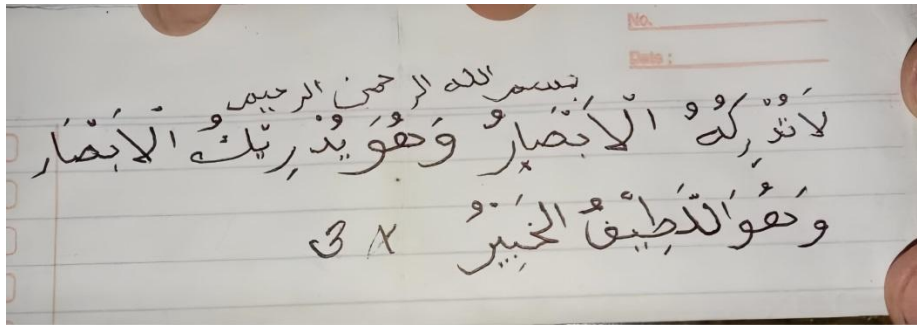 No.
Date :
بسم الله الرحمن الرحيم
لَا تُدْرِكُهُ الْاَبْصَارُ وَهُوَ يُدْرِيْكُ الْاَبْصَارَ
وَهُوَ الَّطِيْفُ الْخَبِيْرُ 3 x